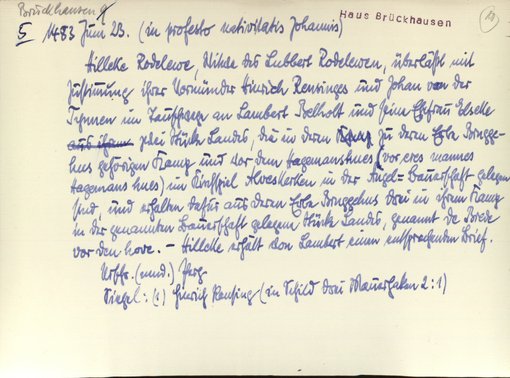 Brückhausen
Haus Brückhausen
5 1483 Juni 23. (in profesto nativitatis Johannis)
Hilleke Rodelewe, Witwe des Lubbert Rodelewen, überläßt mit
Zustimmung ihrer Vormünder Hinrich Rensinges und Johan van der
Tynnen im Tauschwege an Lambert Bolholt und seine Ehefrau Elseke
aus ihrem zwei Stücke Landes, die in deren Kamp zu deren Erbe Brugge-
hus gehörigen Kamp und vor dem hagemanshues (vor eres mannes
hagemans hues) im Kirchspiel Alverskerken in der Angel-Bauerschaft gelegen
sind, und erhalten dafür aus deren Erbe Bruggehus drei in ihrem Kamp
in der genannten Bauerschaft gelegene Stücke Landes, genannt de Brede
vor den hove. – Hilleke erhält von Lambert einen entsprechenden Brief.
Urschr. (mnd.) Perg.
Siegel: (1) Hinrich Rensing (in Schild drei Mauerhaken 2:1)